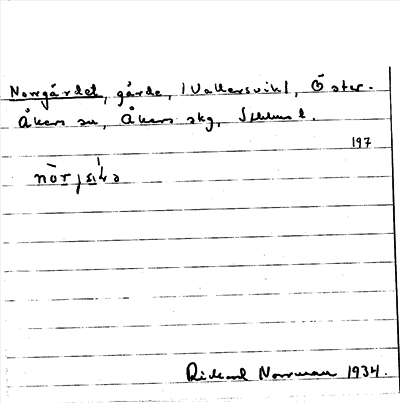 Norrgärdet, gärde, (Vallersvik), Öster-
Åkers sn, Åkers skg, Sthlms l.
197
Rickard Norrman 1934.